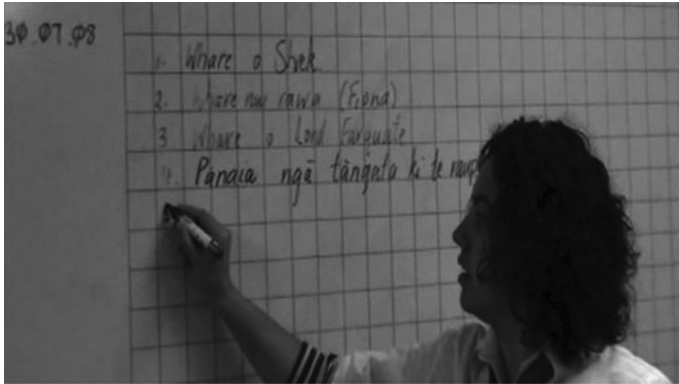 30.07.08
1. Whare o Shrek.
2. Whare nui rawa (Fiona)
3 Whare o Lord Farquate
4. Panaia ngā tāngata ki te